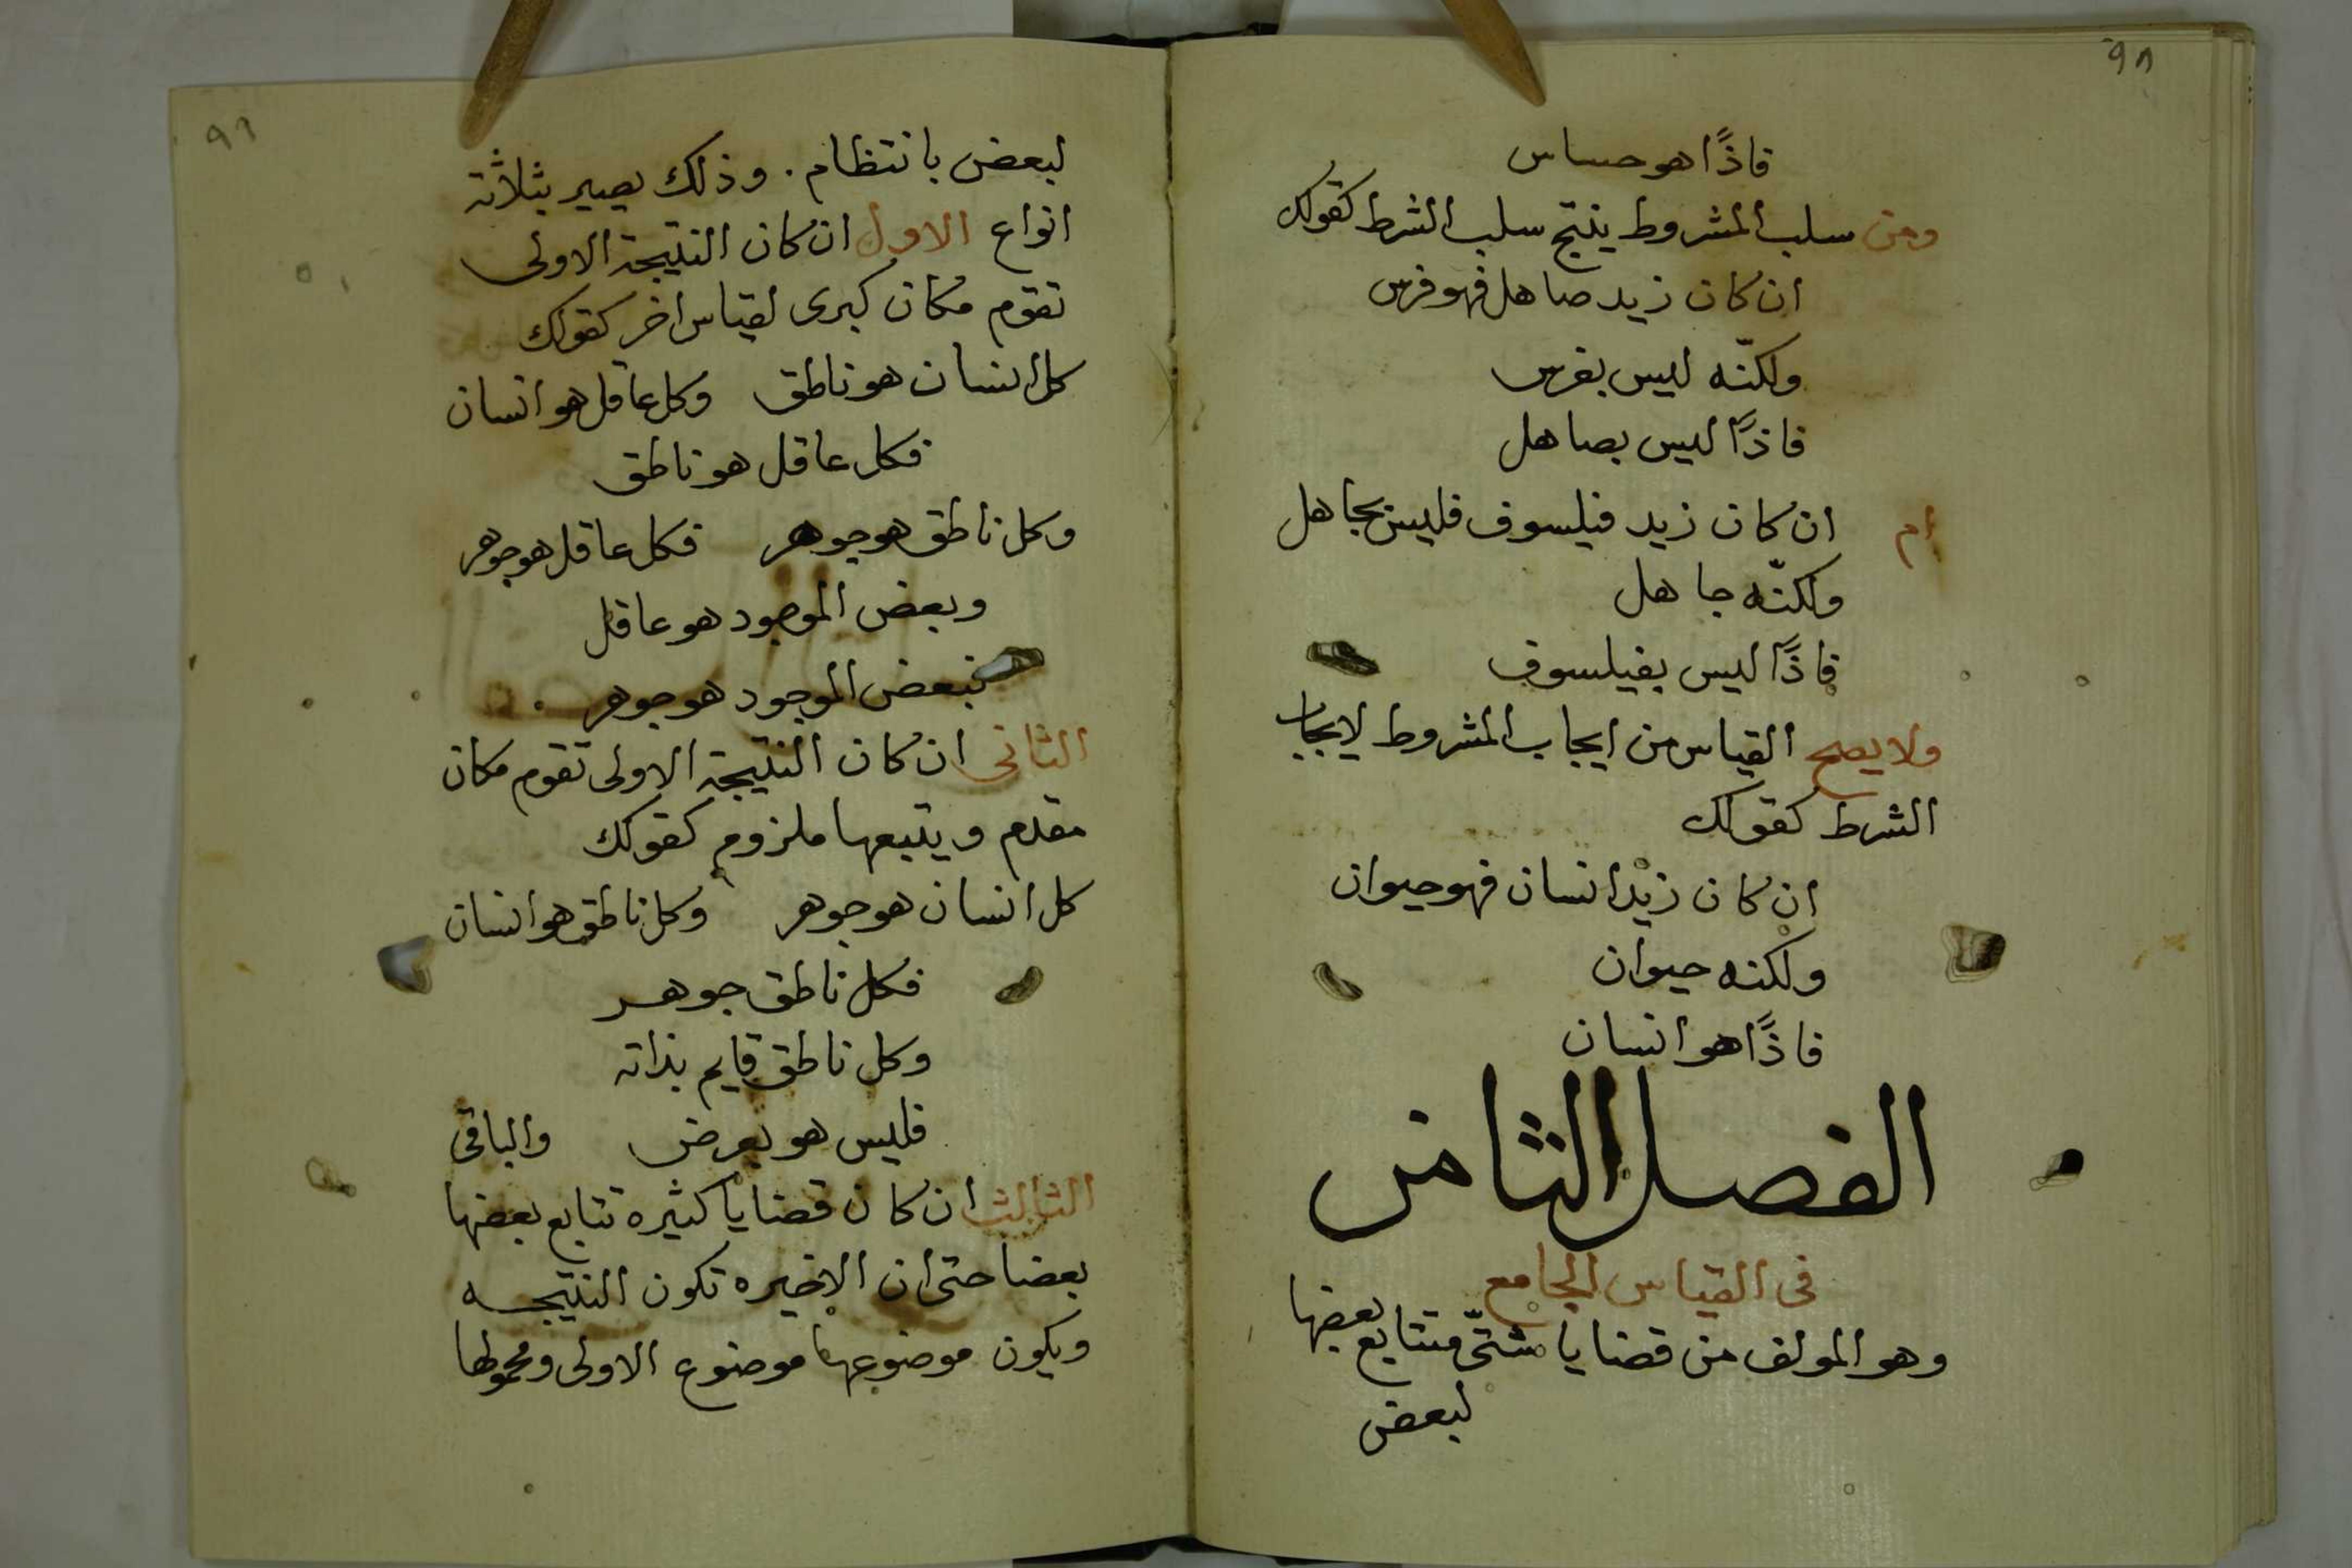 ٩٨
فاذًا هو حساس
ومن سلب المشروط ينتج سلب الشرط كقولك
ان كان زيد صاهل فهو فرس
ولكنّه ليس بفرس
فاذًا ليس بصاهل
ام ان كان زيد فيلسوف فليس بجاهل
ولكنّه جاهل
فاذًا ليس بفيلسوف
ولا يصح القياس من ايجاب المشروط لايجاب
الشرط كقولك
ان كان زيد انسان فهو حيوان
ولكنه حيوان
فاذًا هو انسان
الفصل الثامن
فى القياس الجامع
وهو المولف من قضايا شتّى متتابع بعضها
لبعض
٩٩
لبعض بانتظام . وذلك يصير بثلاثة
انواع الاول ان كان النتيجة الاولى
تقوم مكان كبرى لقياس اخر كقولك
كل انسان هو ناطق وكل عاقل هو انسان
فكل عاقل هو ناطق
وكل ناطق هو جوهر فكل عاقل هو جوهر
وبعض الموجود هو عاقل
فبعض الموجود هو جوهر .
الثانى ان كان النتيجة الاولى تقوم مكان
مقدم ويتبعها ملزوم كقولك
كل انسان هو جوهر وكل ناطق هو انسان
فكل ناطق جوهر
وكل ناطق قايم بذاته
فليس هو بعرض والباقى
الثالث ان كان قضايا كثيره تتابع بعضها
بعضا حتى ان الاخيره تكون النتيجه
ويكون موضوعها موضوع الاولى ومحمولها